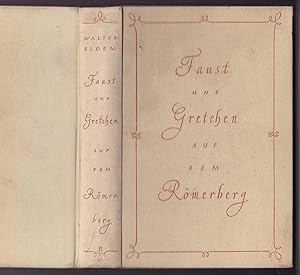 WALTER
BLOEM
Faust
UND
Gretchen
AUF
DEM
Römer-
berg
Faust
UND
Gretchen
AUF
DEM
Römerberg